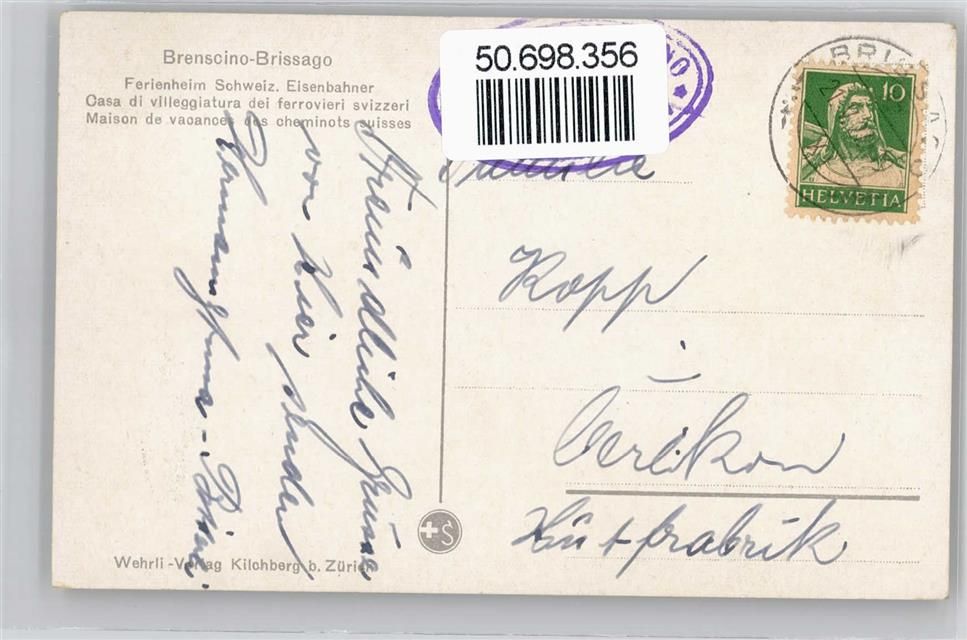 Brenscino-Brissago
Ferienheim Schweiz. Eisenbahner
Casa di villeggiatura dei ferrovieri svizzeri
Maison de vacances des cheminots suisses
50.698.356
BRISSAGO
10
HELVETIA
Familie
Kopp
Oerlikon
Hutfabrik
Freundliche Grüsse
von hier senden
S
Wehrli-Verlag Kilchberg b. Zürich